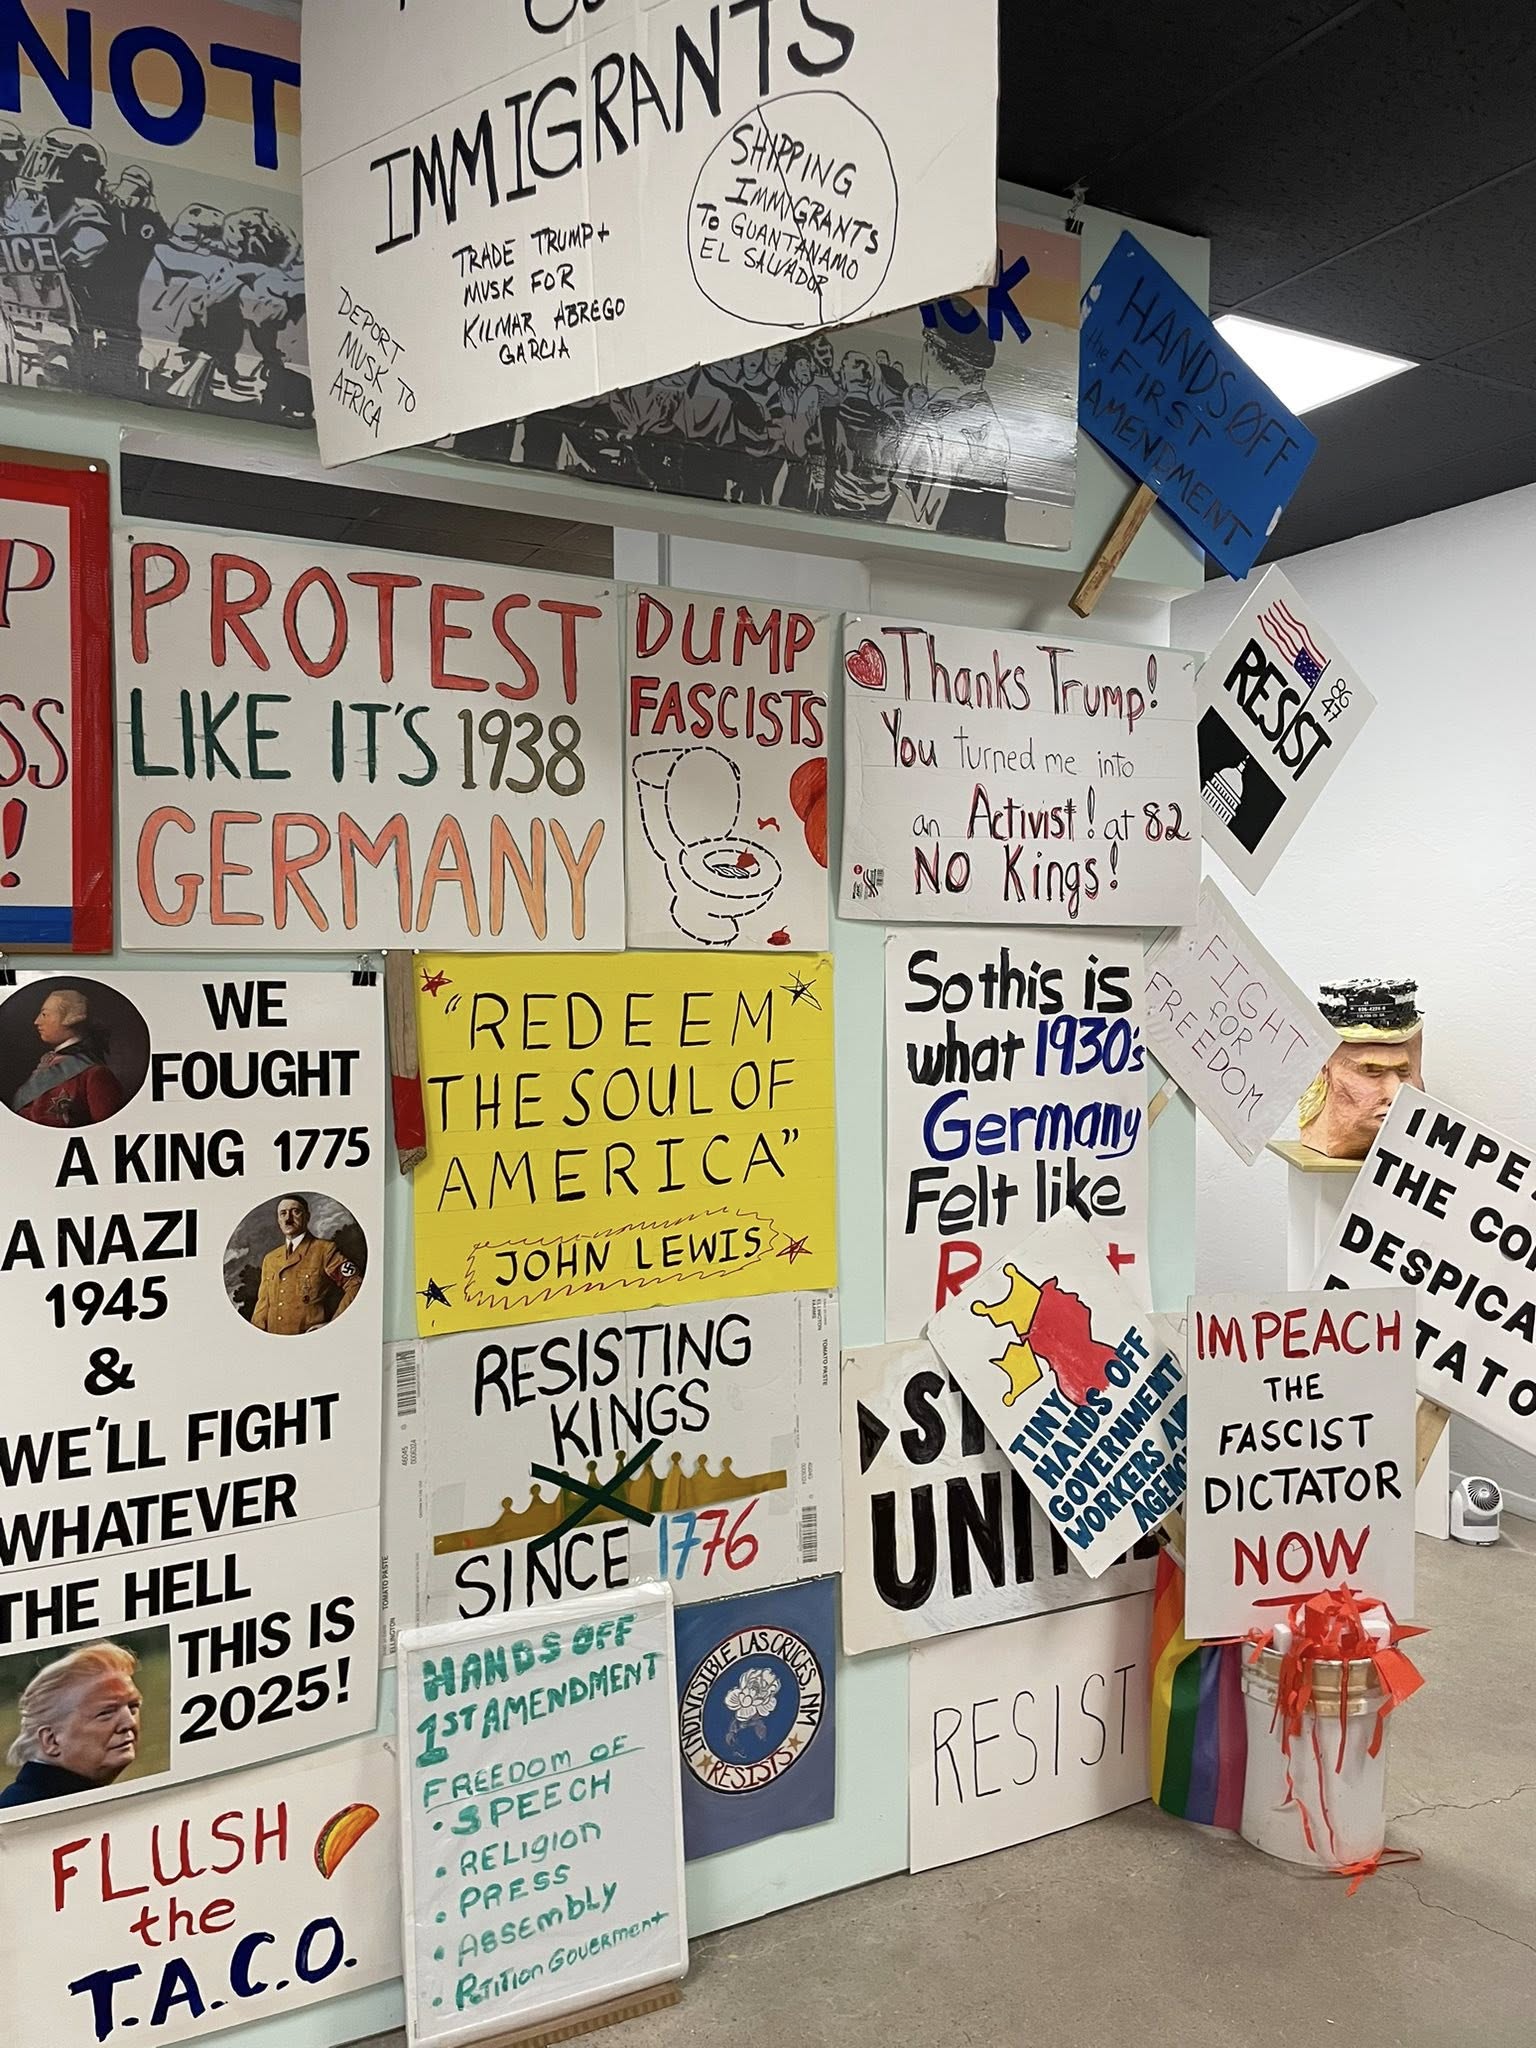 NOT
IMMIGRANTS
SHIPPING
IMMIGRANTS
TO GUANTANAMO
EL SALVADOR
TRADE TRUMP +
MUSK FOR
KILMAR ABREGO
GARCIA
DEPORT
MUSK TO
AFRICA
HANDS OFF
the FIRST
AMENDMENT
PROTEST
LIKE IT'S 1938
GERMANY
DUMP
FASCISTS
Thanks Trump!
You turned me into
an Activist! at 82
NO Kings!
RESIST
8647
WE
FOUGHT
A KING 1775
A NAZI
1945
&
WE'LL FIGHT
WHATEVER
THE HELL
THIS IS
2025!
"REDEEM
THE SOUL OF
AMERICA"
JOHN LEWIS
So this is
what 1930's
Germany
Felt like
FIGHT
for
FREEDOM
THE
DESPICA
RESISTING
KINGS
SINCE 1776
TOMATO PASTE
TINY
HANDS OFF
GOVERNMENT
WORKERS
IMPEACH
THE
FASCIST
DICTATOR
NOW
HANDS OFF
1ST AMENDMENT
FREEDOM OF
• SPEECH
• RELIGION
• PRESS
• ASSEMBLY
• PETITION GOVERMENT
INDIVISIBLE LAS CRUCES, NM
RESISTS
RESIST
FLUSH
the
T.A.C.O.